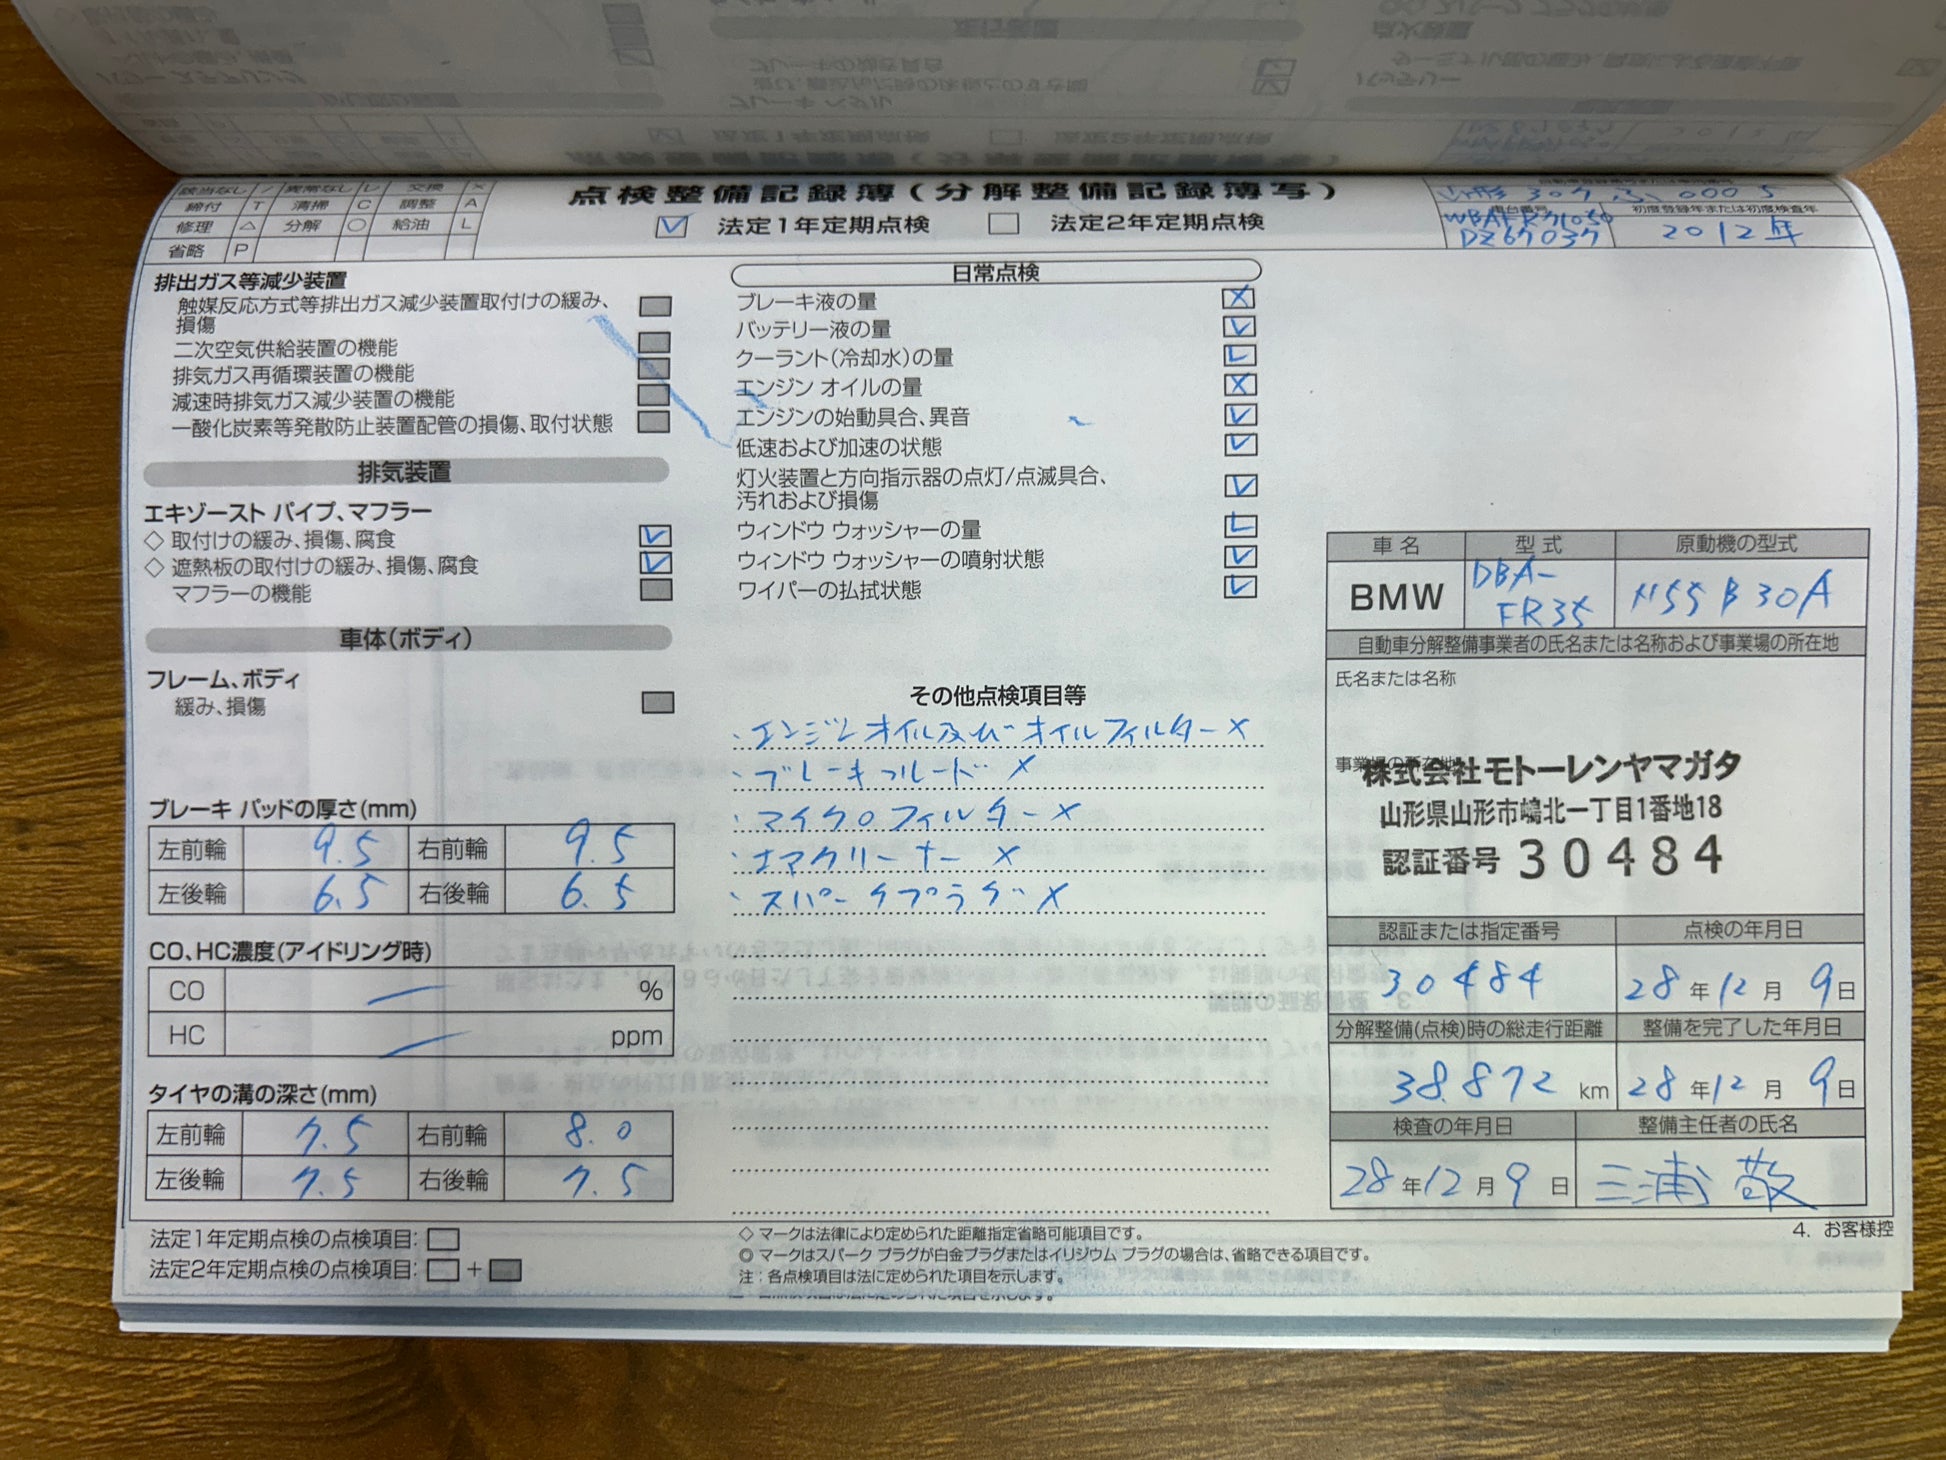 該当なし / 異常なし レ 交換 ×
締付 T 清掃 C 調整 A
修理 △ 分解 ○ 給油 L
省略 P
点検整備記録簿(分解整備記録簿写)
法定1年定期点検 法定2年定期点検
山形 307 ふ 0005
車台番号 初度登録年または初度検査年
DZ67037 2012年
排出ガス等減少装置
触媒反応方式等排出ガス減少装置取付けの緩み、
損傷
二次空気供給装置の機能
排気ガス再循環装置の機能
減速時排気ガス減少装置の機能
一酸化炭素等発散防止装置配管の損傷、取付状態
排気装置
エキゾースト パイプ、マフラー
◇ 取付けの緩み、損傷、腐食 レ
◇ 遮熱板の取付けの緩み、損傷、腐食 レ
マフラーの機能
車体(ボディ)
フレーム、ボディ
緩み、損傷
ブレーキ パッドの厚さ(mm)
左前輪 9.5 右前輪 9.5
左後輪 6.5 右後輪 6.5
CO、HC濃度(アイドリング時)
CO — %
HC — ppm
タイヤの溝の深さ(mm)
左前輪 7.5 右前輪 8.0
左後輪 7.5 右後輪 7.5
日常点検
ブレーキ液の量 ×
バッテリー液の量 レ
クーラント(冷却水)の量 L
エンジン オイルの量 ×
エンジンの始動具合、異音 レ
低速および加速の状態 レ
灯火装置と方向指示器の点灯/点滅具合、
汚れおよび損傷 レ
ウィンドウ ウォッシャーの量 L
ウィンドウ ウォッシャーの噴射状態 レ
ワイパーの払拭状態 レ
その他点検項目等
・エンジンオイル及びオイルフィルター ×
・ブレーキフルード ×
・マイクロフィルター ×
・エアクリーナー ×
・スパークプラグ ×
車名 型式 原動機の型式
BMW DBA-
FR35 N55B30A
自動車分解整備事業者の氏名または名称および事業場の所在地
氏名または名称
事業場の所在地
株式会社モトーレンヤマガタ
山形県山形市嶋北一丁目1番地18
認証番号 30484
認証または指定番号 点検の年月日
30484 28年12月9日
分解整備(点検)時の総走行距離 整備を完了した年月日
38.872 km 28年12月9日
検査の年月日 整備主任者の氏名
28年12月9日 三浦 敬
4. お客様控
法定1年定期点検の点検項目:
法定2年定期点検の点検項目: +
◇ マークは法律により定められた距離指定省略可能項目です。
◎ マークはスパーク プラグが白金プラグまたはイリジウム プラグの場合は、省略できる項目です。
注:各点検項目は法に定められた項目を示します。